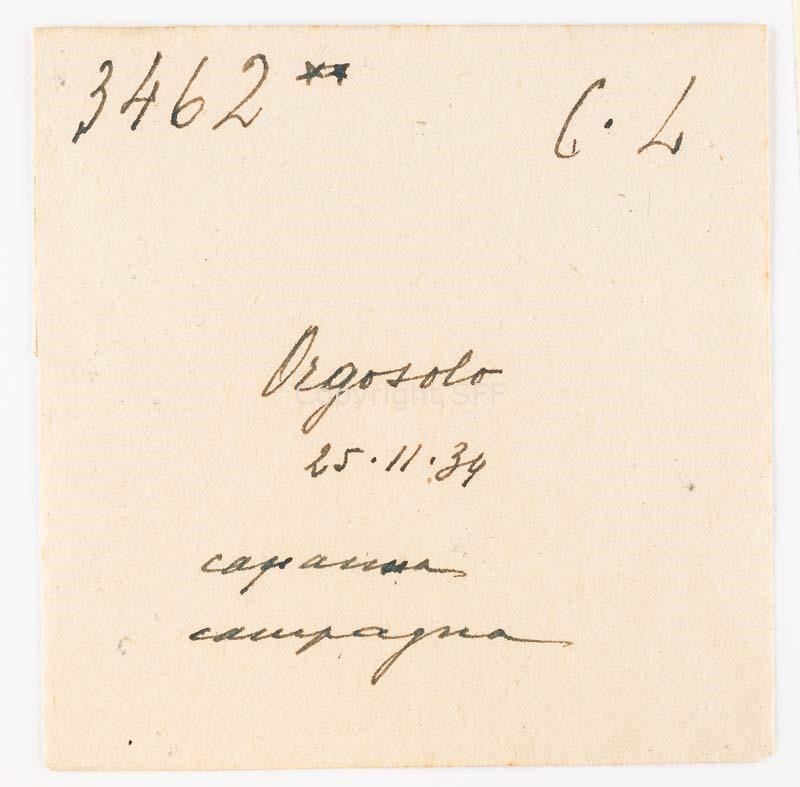 3462 ** C. L
Orgosolo
Copyright SFF
25.11.34
capanna
campagna